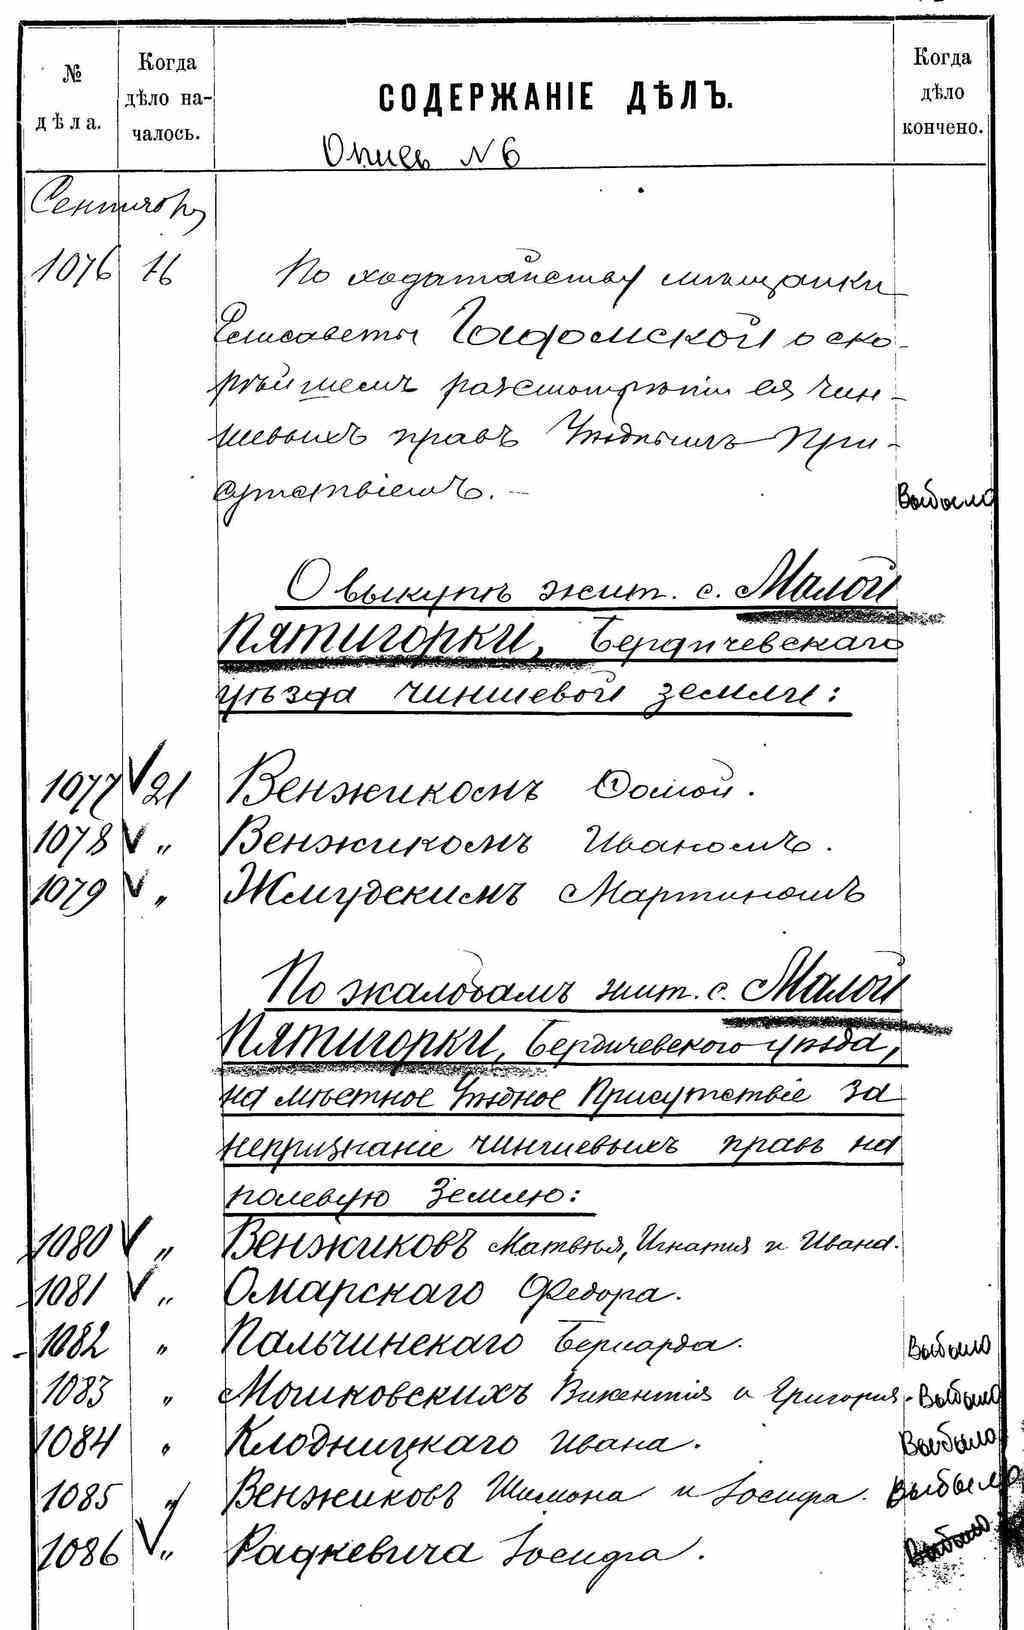 № дѣла.
Когда дѣло началось.
СОДЕРЖАНІЕ ДѢЛЪ.
Когда дѣло кончено.
Опись N 6
Сентябрь
1076 16 По ходатайству мѣщанки
Елисаветы Гадомской о ско-
рѣйшемъ разсмотрѣніи ея чин-
шевыхъ правъ Уѣзднымъ При-
сутствіемъ. - Выбыло
О выкупѣ жит. с. Малой
Пятигорки, Бердичевскаго
уѣзда чиншевой земли:
1077 V 21 Венжикомъ Фомой.
1078 V „ Венжикомъ Иваномъ.
1079 V „ Жмудскимъ Мартиномъ
По жалобамъ жит. с. Малой
Пятигорки, Бердичевского уѣзда,
на мѣстное Уѣздное Присутствіе за
непризнаніе чиншевыхъ правъ на
полевую землю:
1080 V „ Венжиковъ Матвѣя, Игнатія и Ивана.
1081 V „ Омарскаго Федора.
1082 „ Пальчинскаго Бернарда. Выбыло
1083 „ Мошковскихъ Викентія и Григорія. Выбыло
1084 „ Клодницкаго Ивана. Выбыло
1085 „ Венжиковъ Шимона и Іосифа. Выбыло
1086 V „ Радкевича Іосифа. Выбыло